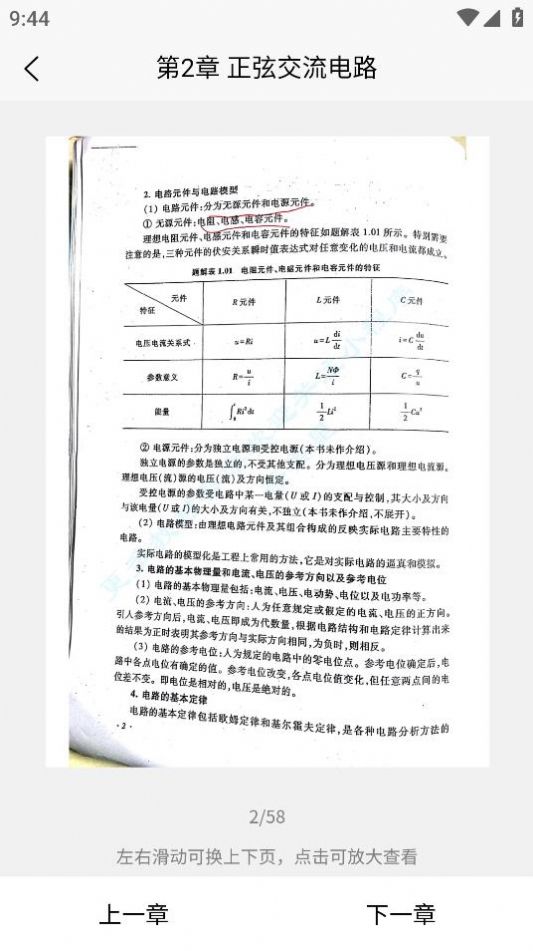 9:44
第2章 正弦交流电路
2. 电路元件与电路模型
(1) 电路元件:分为无源元件和电源元件。
① 无源元件:电阻、电感、电容元件。
理想电阻元件、电感元件和电容元件的特征如题解表 1.01 所示。特别需要
注意的是,三种元件的伏安关系瞬时值表达式对任意变化的电压和电流都成立。
题解表 1.01 电阻元件、电感元件和电容元件的特征
元件 特征 R 元件 L 元件 C 元件
电压电流关系式 u=Ri u=L di/dt i=C du/dt
参数意义 R=u/i L=NΦ/i C=q/u
能量 ∫Ri²dt 1/2 Li² 1/2 Cu²
② 电源元件:分为独立电源和受控电源(本书未作介绍)。
独立电源的参数是独立的,不受其他支配。分为理想电压源和理想电流源。
理想电压(流)源的电压(流)及方向恒定。
受控电源的参数受电路中某一电量(U 或 I)的支配与控制,其大小及方向
与该电量(U 或 I)的大小及方向有关,不独立(本书未作介绍,不展开)。
(2) 电路模型:由理想电路元件及其组合构成的反映实际电路主要特性的
电路。
实际电路的模型化是工程上常用的方法,它是对实际电路的逼真和模拟。
3. 电路的基本物理量和电流、电压的参考方向以及参考电位
(1) 电路的基本物理量包括:电流、电压、电动势、电位以及电功率等。
(2) 电流、电压的参考方向:人为任意规定或假定的电流、电压的正方向。
引人参考方向后,电流、电压即成为代数量,根据电路结构和电路定律计算出来
的结果为正时表明其参考方向与实际方向相同,为负时,则相反。
(3) 电路的参考电位:人为规定的电路中的零电位点。参考电位确定后,电
路中各点电位有确定的值。参考电位改变,各点电位值变化,但任意两点间的电
位差不变。即电位是相对的,电压是绝对的。
4. 电路的基本定律
电路的基本定律包括欧姆定律和基尔霍夫定律,是各种电路分析方法的
· 2 ·
2/58
左右滑动可换上下页，点击可放大查看
上一章 下一章